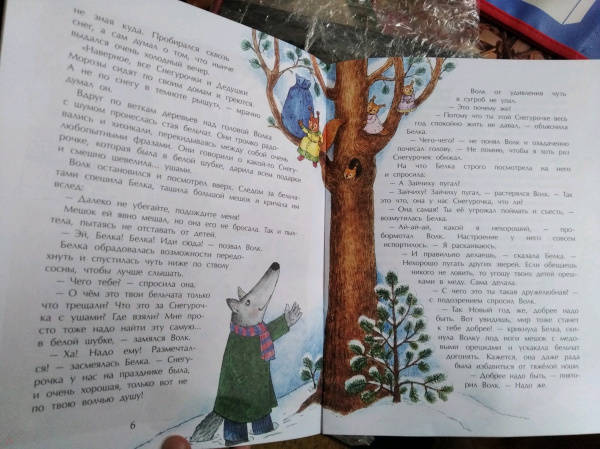 не зная куда. Пробирался сквозь
снег, а сам думал о том, что нынче
выдался очень холодный вечер.
«Наверное, все Снегурочки и Дедушки
Морозы сидят по своим домам и греются.
А не по снегу в темноте рыщут», — мрачно
думал он.
Вдруг по веткам деревьев над головой Волка
с шумом пронеслась стая бельчат. Они громко радо-
вались и хихикали, перекидываясь между собой очень
любопытными фразами. Они говорили о какой-то Снегу-
рочке, которая была в белой шубке, дарила всем подарки
и смешно шевелила... ушами.
Волк остановился и посмотрел вверх. Следом за бельча-
тами спешила Белка, тащила большой мешок и кричала им
вслед:
— Далеко не убегайте, подождите меня!
Мешок ей явно мешал, но она его не бросала. Так и пых-
тела, пытаясь не отставать от детей.
— Эй, Белка! Белка! Иди сюда! — позвал Волк.
Белка обрадовалась возможности передо-
хнуть и спустилась чуть ниже по стволу
сосны, чтобы лучше слышать.
— Чего тебе? — спросила она.
— О чём это твои бельчата только
что трещали? Что это за Снегуроч-
ка с ушами? Где взяли? Мне про-
сто тоже надо найти эту самую...
в белой шубке, — замялся Волк.
— Ха! Надо ему! Размечтал-
ся! — засмеялась Белка. — Снегу-
рочка у нас на празднике была,
и очень хорошая, только вот не
по твою волчью душу!
6
Волк от удивления чуть
в сугроб не упал.
— Это почему же?
— Потому что ты этой Снегурочке весь
год спокойно жить не давал, — объяснила
Белка.
— Чего-чего! — не понял Волк и озадаченно
почесал голову. — Не помню, чтобы я хоть раз
Снегурочек обижал.
На что Белка строго посмотрела на него
и спросила:
— А Зайчиху пугал?
— Зайчиху? Зайчиху пугал... — растерялся Волк. — Так
это что, она у нас Снегурочка, что ли?
— Она самая! Ты её угрожал поймать и съесть, —
возмутилась Белка.
— Ай-ай-ай, какой я нехороший, — про-
бормотал Волк. Настроение у него совсем
испортилось. — Я раскаиваюсь.
— И правильно делаешь, — сказала Белка. —
Нехорошо пугать других зверей. Если обещаешь
никого не ловить, то угощу твоих детей ореш-
ками в меду. Сама делала.
— С чего это ты такая дружелюбная? —
с подозрением спросил Волк.
— Так Новый год же, добрее надо
быть. Вот увидишь, мир тоже станет
к тебе добрее! — крикнула Белка, ски-
нула Волку под ноги мешок с медо-
выми орешками и ускакала бельчат
догонять. Кажется, она даже рада
была избавиться от тяжёлой ноши.
— Добрее надо быть, — повто-
рил Волк. — Надо же.